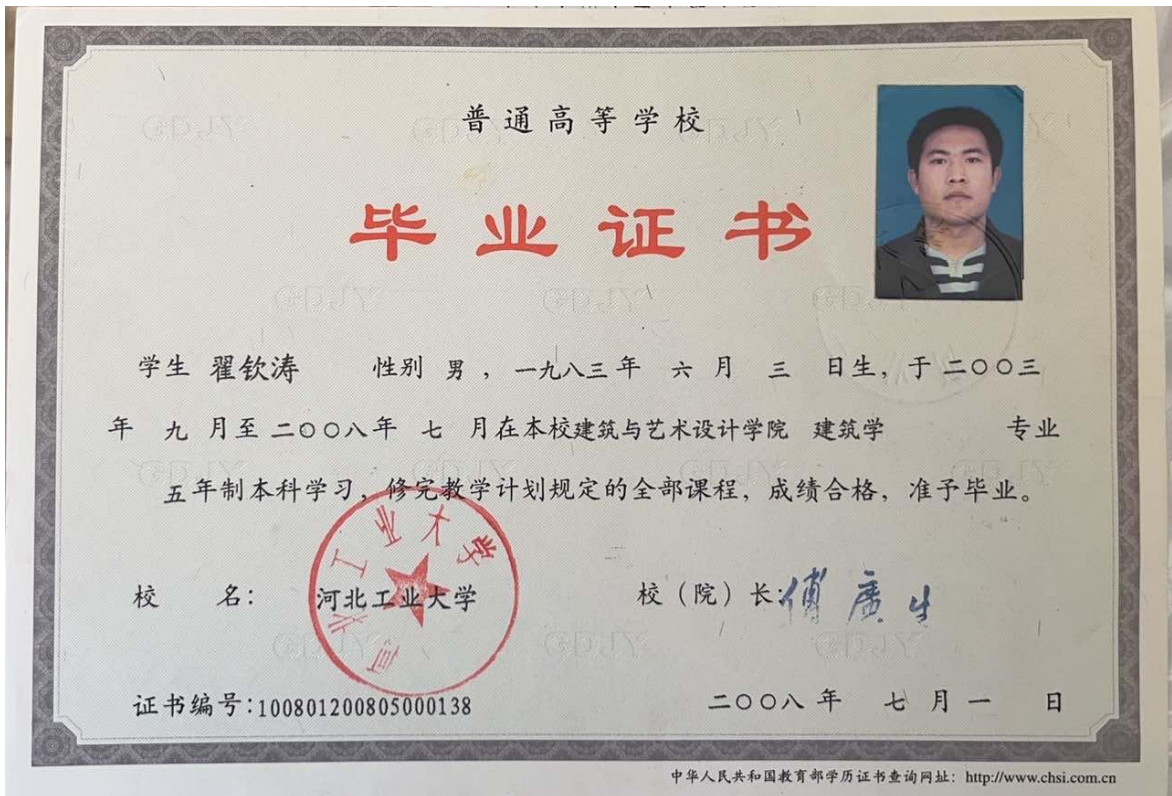 普通高等学校
毕业证书
学生 翟钦涛 性别 男 ，一九八三年 六 月 三 日生，于二〇〇三
年 九 月至二〇〇八年 七 月在本校建筑与艺术设计学院 建筑学 专业
五年制本科学习，修完教学计划规定的全部课程，成绩合格，准予毕业。
校 名： 河北工业大学
河北工业大学
校（院）长：傅廣生
证书编号:100801200805000138
二〇〇八年 七 月 一 日
中华人民共和国教育部学历证书查询网址：http://www.chsi.com.cn